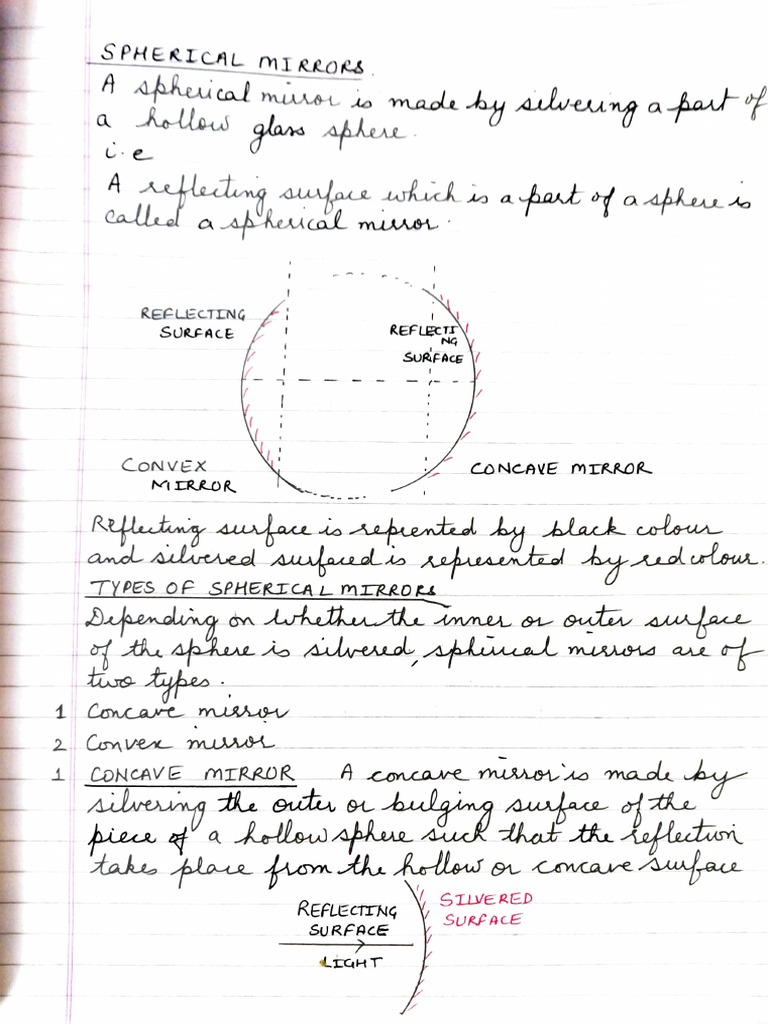 SPHERICAL MIRRORS.
A spherical mirror is made by silvering a part of
a hollow glass sphere.
i.e
A reflecting surface which is a part of a sphere is
called a spherical mirror.
REFLECTING
SURFACE
REFLECTI
NG
SURFACE
CONVEX
MIRROR
CONCAVE MIRROR
Reflecting surface is reprented by black colour
and silvered surfaced is represented by red colour.
TYPES OF SPHERICAL MIRRORS
Depending on whether the inner or outer surface
of the sphere is silvered, spherical mirrors are of
two types.
1 Concave mirror
2 Convex mirror
1 CONCAVE MIRROR A concave mirror is made by
silvering the outer or bulging surface of the
piece of a hollow sphere such that the reflection
takes place from the hollow or concave surface
REFLECTING
SURFACE
SILVERED
SURFACE
LIGHT